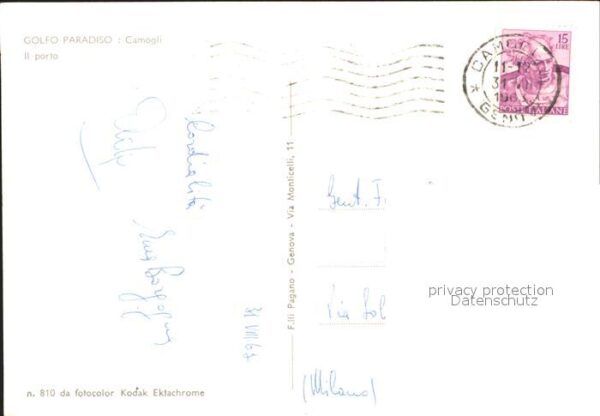 GOLFO PARADISO : Camogli
Il porto
15
LIRE
CAMOGLI
11-12
GENOVA
POSTE ITALIANE
Cordialità
31 VIII 63
F.lli Pagano - Genova - Via Monticelli, 11
Gent. F.
Via Sol
(Milano)
privacy protection
Datenschutz
n. 810 da fotocolor Kodak Ektachrome